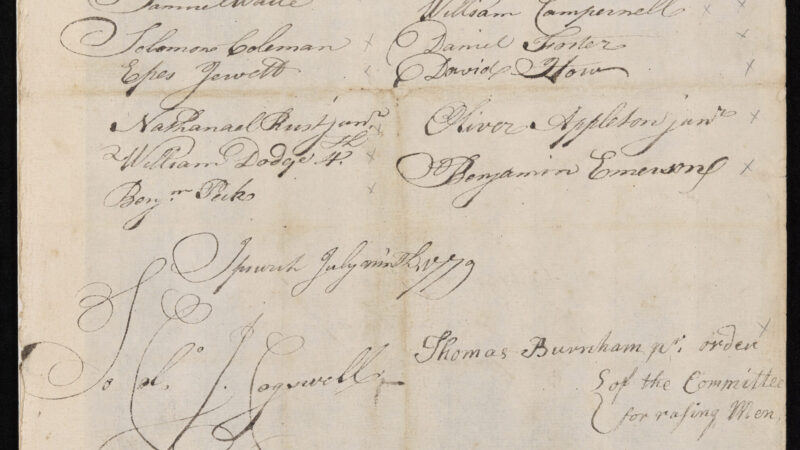 Samuel Waite
William Campernell
Solomon Coleman
Daniel Foster
Epes Jewett
David How
Nathanael Rust junr
Oliver Appleton junr
William Dodge 4th
Benjamin Emerson
Benjn Peck
Ipswich July 1779
Thomas Burnham pr. order
of the Committee
for rasing Men
To Col. J. Cogswell